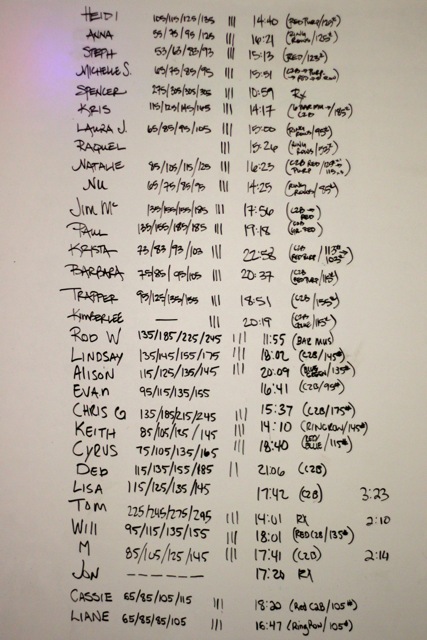 HEIDI 105/115/125/135 ||| 14:40
ANNA 55/75/95/125 ||| 16:21
STEPH 53/63/83/93 ||| 15:13 (RED/125#)
MICHELLE S. 65/75/85/95 ||| 15:51
SPENCER 275/305/305/305 ||| 10:59 RX
KRIS 115/125/145/165 ||| 14:17
LAURA J. 65/85/95/105 ||| 15:00
RAQUEL ||| 15:26
NATALIE 85/105/115/125 ||| 16:23
NU 65/75/85/95 ||| 14:25
Jim Mc 135/155/155/185 ||| 17:56 (C2B → RED)
PAUL 135/155/185/185 ||| 19:18
KRISTA 73/83/93/103 ||| 22:58
BARBARA 75/85/95/105 ||| 20:37
TRAPPER 95/125/135/155 ||| 18:51 (C2B/155#)
KIMBERLEE — ||| 20:19
ROD W 135/185/225/245 ||| 11:55 (BAR MUS)
LINDSAY 135/145/155/175 ||| 18:02 (C2B/145#)
ALISON 115/125/135/145 ||| 20:09
EVAN 95/115/135/155 16:41 (C2B/95#)
CHRIS G 135/185/215/245 ||| 15:37 (C2B/175#)
KEITH 85/105/125/145 ||| 14:10 (RINGROW/145#)
CYRUS 75/105/135/165 ||| 18:40 (RED/BLUE/115#)
DEB 115/135/155/185 || 21:06 (C2B)
LISA 115/125/135/145 17:42 (C2B) 3:23
TOM 225/245/275/295 ||| 14:01 RX 2:10
WILL 95/115/135/155 ||| 18:01 (RED C2B/135#)
M 85/105/125/145 ||| 17:41 (C2B) 2:14
JON ------ 17:20 RX
CASSIE 65/85/105/115 ||| 18:20 (Red C2B/105#)
LIANE 65/85/85/105 ||| 16:47 (Ring Row/105#)